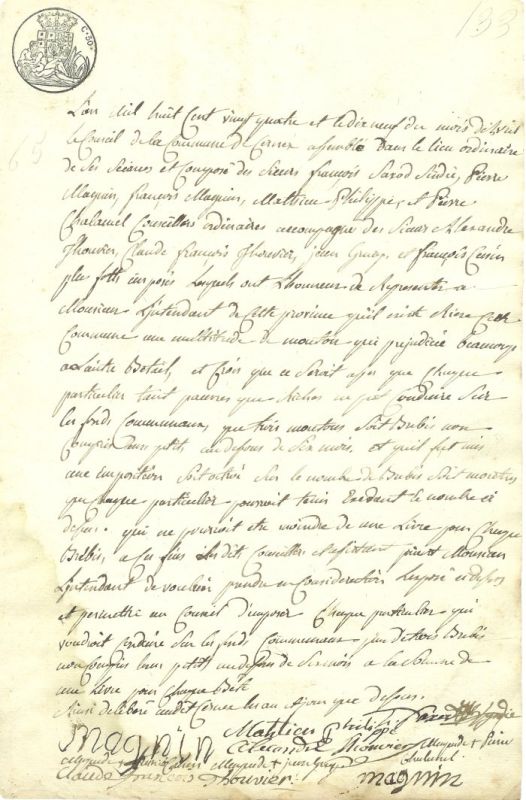 C. 50.
133
L'an mil huit Cent vingt quatre et le dix neuf du mois d'avril
le Conseil de la Commune de Cernex assemblé dans le lieu ordinaire
de ses séances et Composé des sieurs françois Saxod Sindic, Pierre
Magnin, françois Magnin, Mathieu Philippe, et Pierre
Chalamel Conseillers ordinaires accompagné des sieurs Alexandre
Thouvier, Claude françois Thouvier, et françois
plus forts imposés lesquels ont L'honneur de Représenter a
Monsieur L'intendant de Cette province qu'il existe Riere Cette
Commune une multitude de mouton qui prejudicie beaucoup
a Lautre Betail, et Crois que ce Serait assez que Chaque
particulier tant pauvres que Riches ne put Conduire Sur
les fonds Communaux, que trois moutons Soit Brebis non
Compris leurs petits au desous de Six mois, et qu'il fut mis
une imposition Soit Sur le nombre de Brebis Soit moutons
que chaque particulier pourroit tenir Exédant le nombre ci
desus. qui ne pourroit etre moindre de une Livre pour Chaque
Brebis, a Ces fins les dits Conseillers et prient Monsieur
L'intendant de vouloir prendre en Consideration Lexposé ci desus
et permettre au Conseil d'imposer Chaque particulier qui
voudroit Conduire Sur les fonds Communaux plus de trois Brebis
non Compris leurs petits au desous de Six mois a la Somme de
une Livre pour Chaque Bete
Ainsi deliberé audit Cernex les an et jour que desus.
Mathieu philippe Saxod Sindic
magnin Alexandre Thouvier Marque de + Pierre
Chalamel
Marque de + Marque de + jean
Claude françois Thouvier magnin